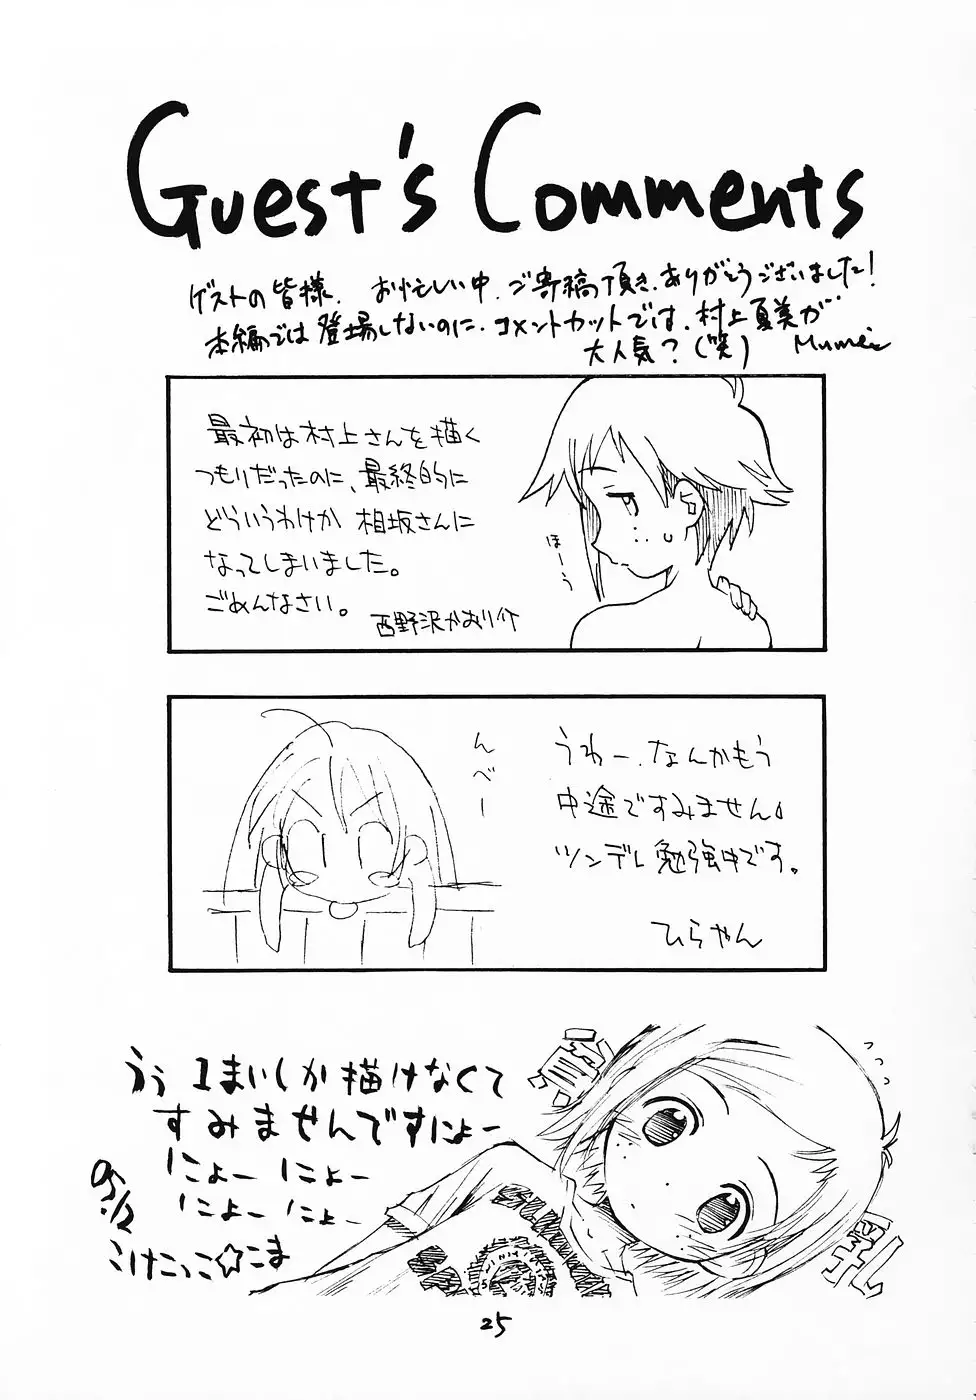 Guest's Comments
ゲストの皆様、お忙しい中、ご寄稿頂き、ありがとうございました!
本編では登場しないのに、コメントカットでは、村上夏美が…
大人気?(笑) Mumei
最初は村上さんを描く
つもりだったのに、最終的に
どういうわけか相坂さんに
なってしまいました。
ごめんなさい。
西野沢かおり介
ほーう
んべー
うわー、なんかもう
中途ですみません。
ツンデレ勉強中です。
ひらやん
うぅ 1まいしか描けなくて
すみませんですにょー
にょー にょー
にょー にょー
05.12
こけこっこ☆こま
乳
25